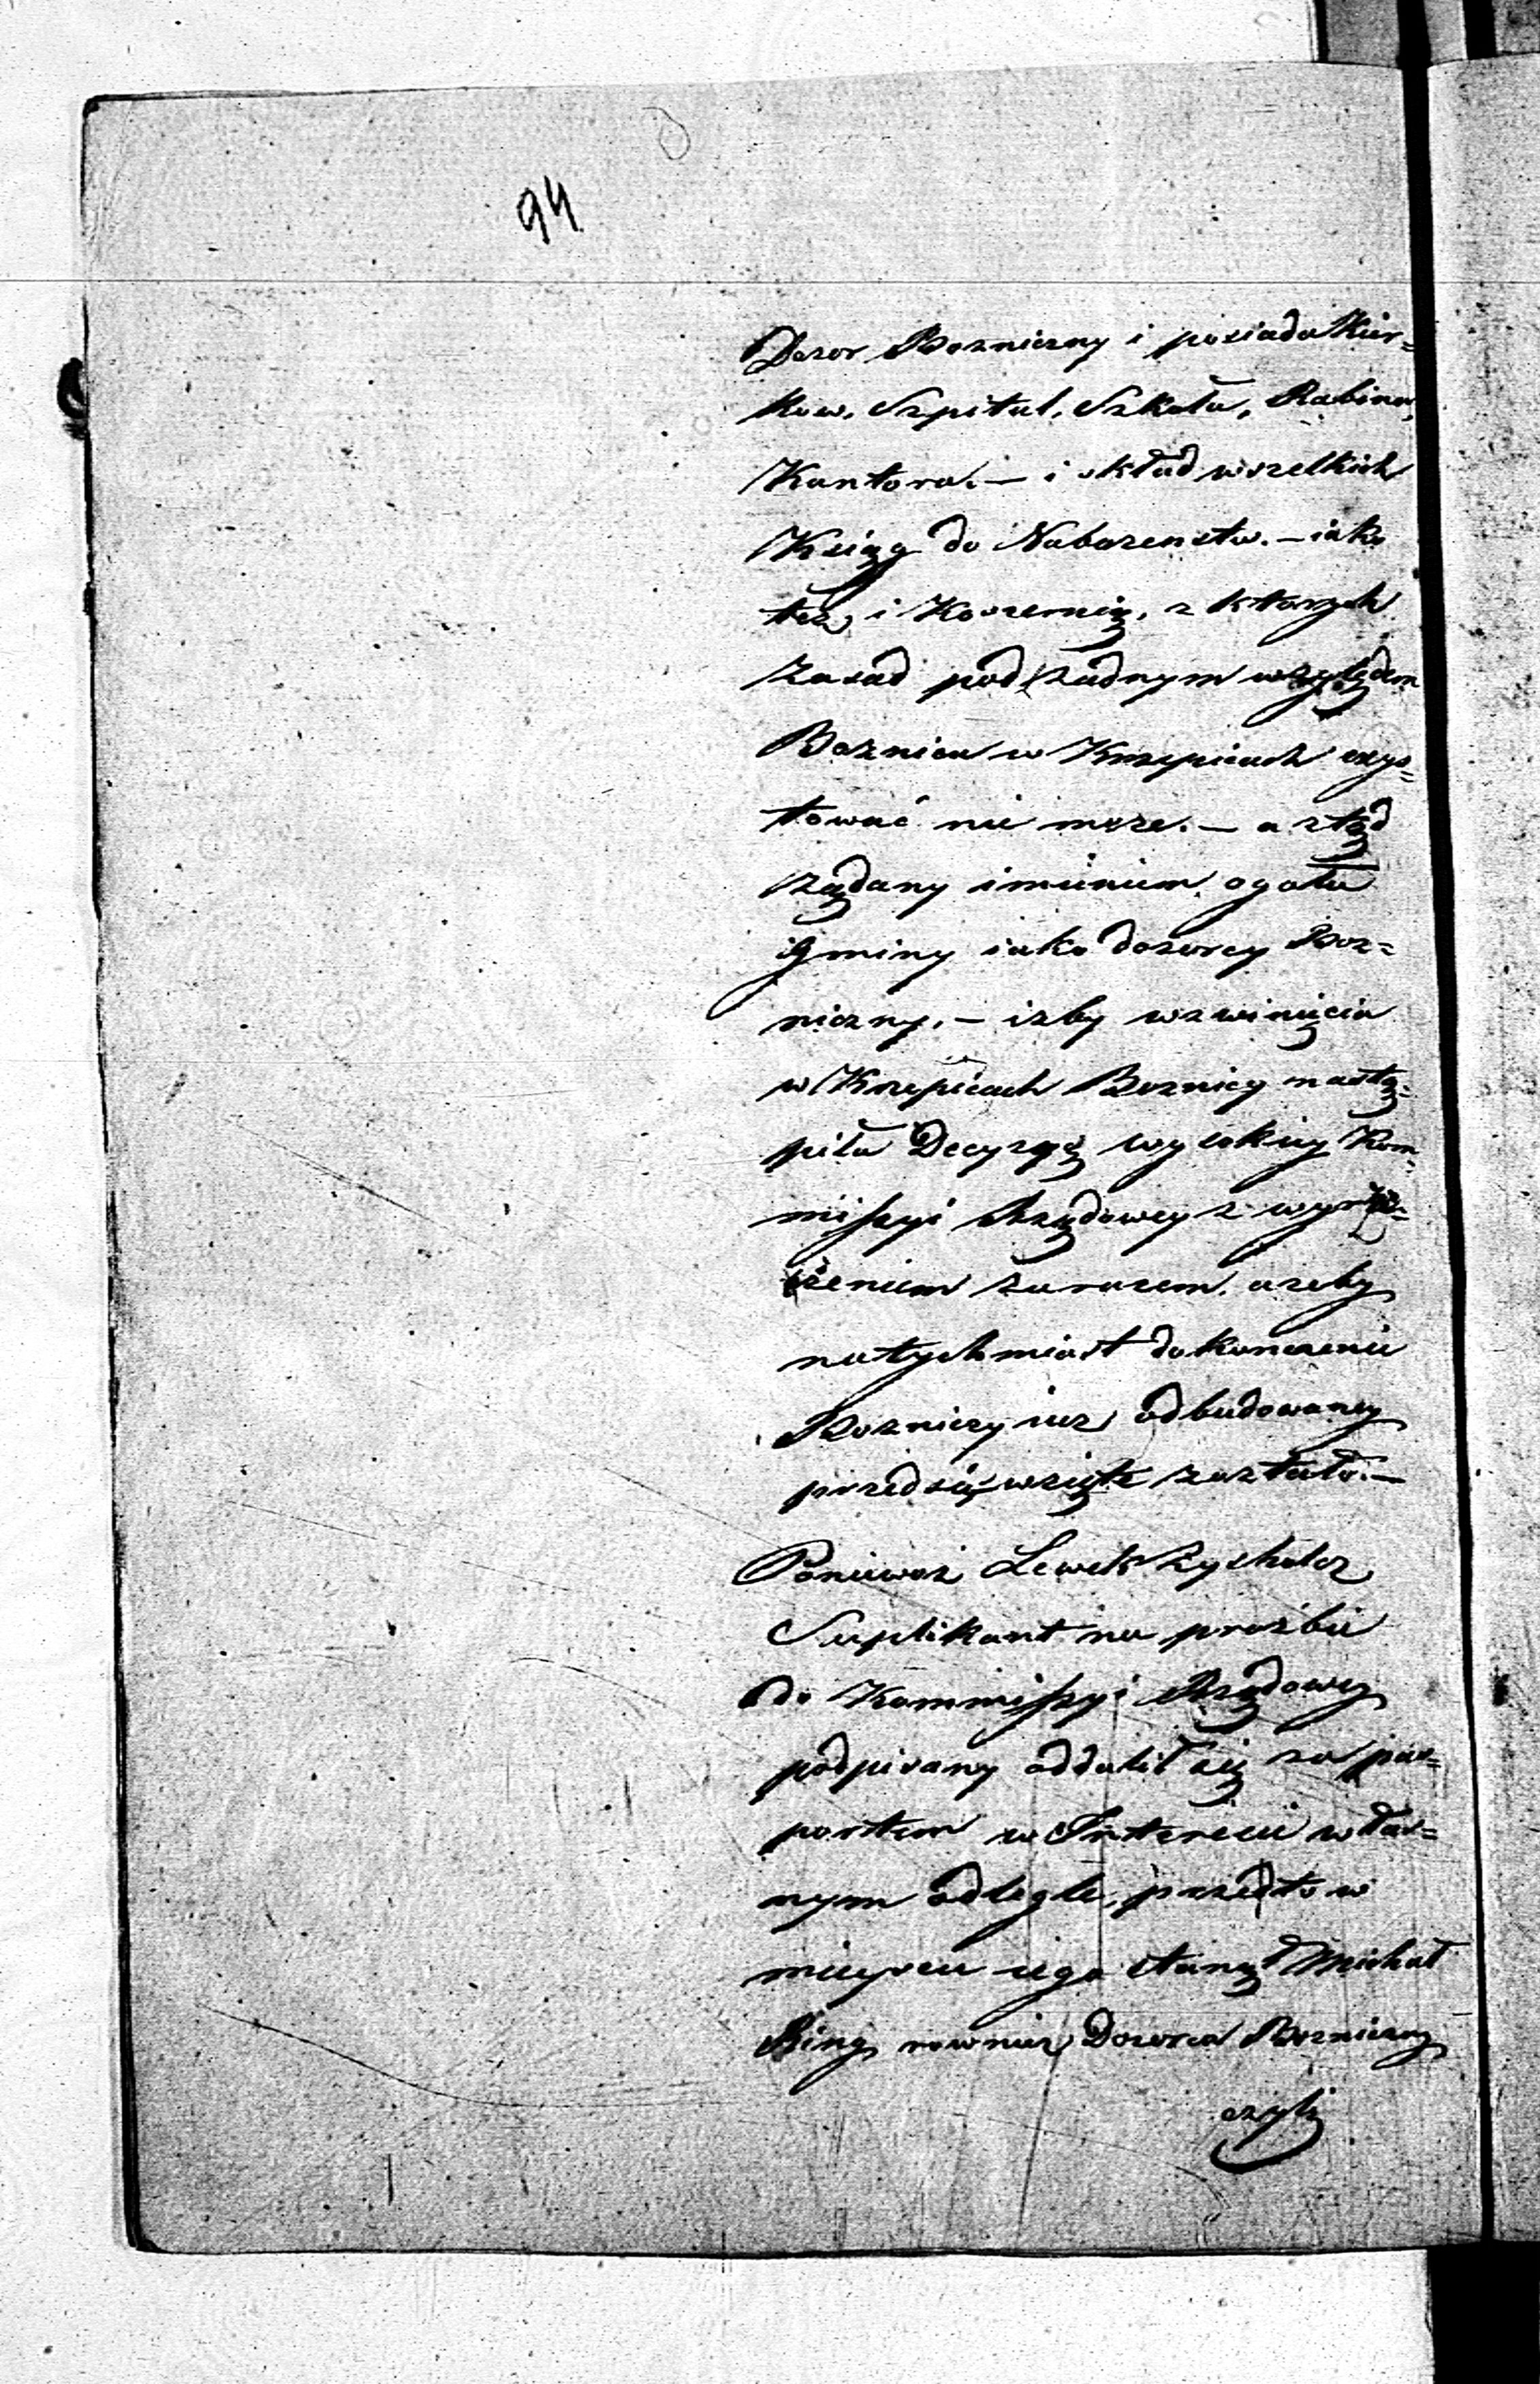 94
Dozor Bozniczny i posiada Kier=
kow, Szpital, Szkoła, Rabina,
Kantora. — i skład wszelkich
Ksiąg do Nabozenstw. — iako
też i Koszernią, z ktorych
zasad pod żadnym względem
Boznica w Krzepicach exys=
tować nie moze. — a ztąd
żądany imieniem ogołu
Gminy iako dozorcy Boz=
niczny, — izby wzwinięcia
w Krzepicach Boznicy nastą=
piła Decyzyą wysokiey Kom=
missyi Rządowey z wyra=
żeniem zarazem, azeby
natychmiast dokonczenie
Boznicy iuz odbudowaney
przedsięwzięte zostało. —
Poniewaz Lewek
Suplikant na prozbie
do Kommissyi Rządowey
podpisany oddalił się za pas=
portem w Interesie włas=
nym odlegle, przeto w
mieyscu iego stanął Michał
Ring rowniez Dozorca Bozniczny
czyli